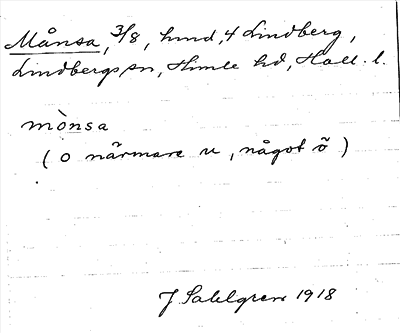 Månsa, 3/8, hmd, 4 Lindberg,
Lindbergs sn, Himle hd, Hall. l.
mònsa
(o närmare u, något õ)
J Sahlgren 1918